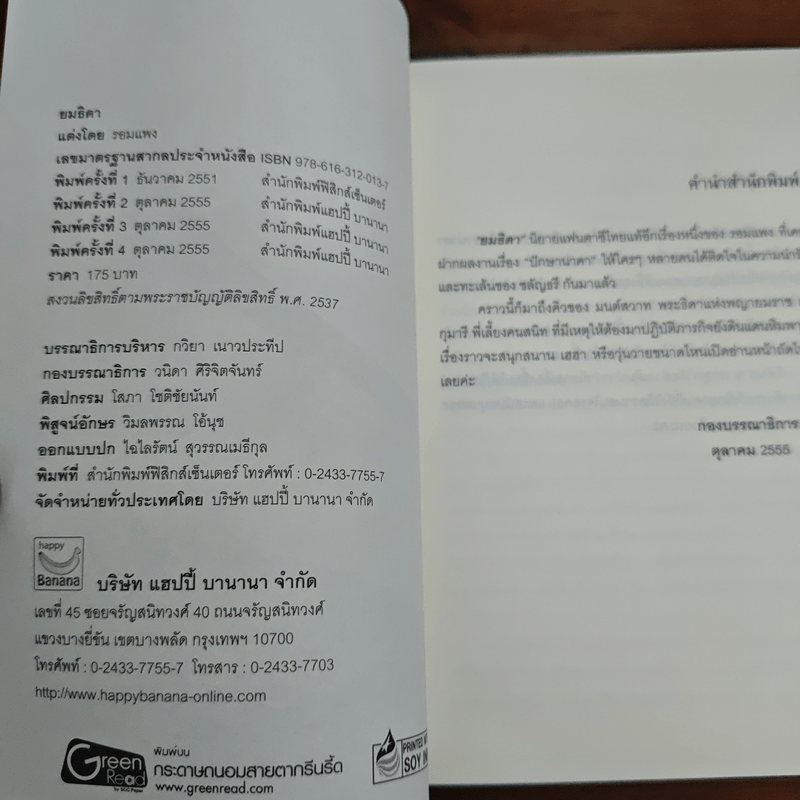 ยมธิดา
แต่งโดย รอมแพง
เลขมาตรฐานสากลประจำหนังสือ ISBN 978-616-312-013-7
พิมพ์ครั้งที่ 1 ธันวาคม 2551 สำนักพิมพ์ฟิสิกส์เซ็นเตอร์
พิมพ์ครั้งที่ 2 ตุลาคม 2555 สำนักพิมพ์แฮปปี้ บานานา
พิมพ์ครั้งที่ 3 ตุลาคม 2555 สำนักพิมพ์แฮปปี้ บานานา
พิมพ์ครั้งที่ 4 ตุลาคม 2555 สำนักพิมพ์แฮปปี้ บานานา
ราคา 175 บาท
สงวนลิขสิทธิ์ตามพระราชบัญญัติลิขสิทธิ์ พ.ศ. 2537
บรรณาธิการบริหาร กวิยา เนาวประทีป
กองบรรณาธิการ วนิดา ศิริจิตจันทร์
ศิลปกรรม โสภา โชติชัยนันท์
พิสูจน์อักษร วิมลพรรณ โอ้นุช
ออกแบบปก ไฉไลรัตน์ สุวรรณเมธีกุล
พิมพ์ที่ สำนักพิมพ์ฟิสิกส์เซ็นเตอร์ โทรศัพท์ : 0-2433-7755-7
จัดจำหน่ายทั่วประเทศโดย บริษัท แฮปปี้ บานานา จำกัด
happy
Banana
บริษัท แฮปปี้ บานานา จำกัด
เลขที่ 45 ซอยจรัญสนิทวงศ์ 40 ถนนจรัญสนิทวงศ์
แขวงบางยี่ขัน เขตบางพลัด กรุงเทพฯ 10700
โทรศัพท์ : 0-2433-7755-7 โทรสาร : 0-2433-7703
http://www.happybanana-online.com
Green Read
by SCG Paper
พิมพ์บน
กระดาษถนอมสายตากรีนรี้ด
www.greenread.com
PRINTED
SOY IN
คำนำสำนักพิมพ์
"ยมธิดา" นิยายแฟนตาซีไทยแท้อีกเรื่องหนึ่งของ รอมแพง ที่เค
ฝากผลงานเรื่อง "ปักษานาคา" ให้ใครๆ หลายคนได้ติดใจในความน่ารั
และทะเล้นของ ชลัญธรี กันมาแล้ว
คราวนี้ก็มาถึงคิวของ มนต์สวาท พระธิดาแห่งพญายมราช
กุมารี พี่เลี้ยงคนสนิท ที่มีเหตุให้ต้องมาปฏิบัติภารกิจยังดินแดนหิมพา
เรื่องราวจะสนุกสนาน เฮฮา หรือวุ่นวายขนาดไหนเปิดอ่านหน้าถัดไ
เลยค่ะ
กองบรรณาธิการ
ตุลาคม 2555